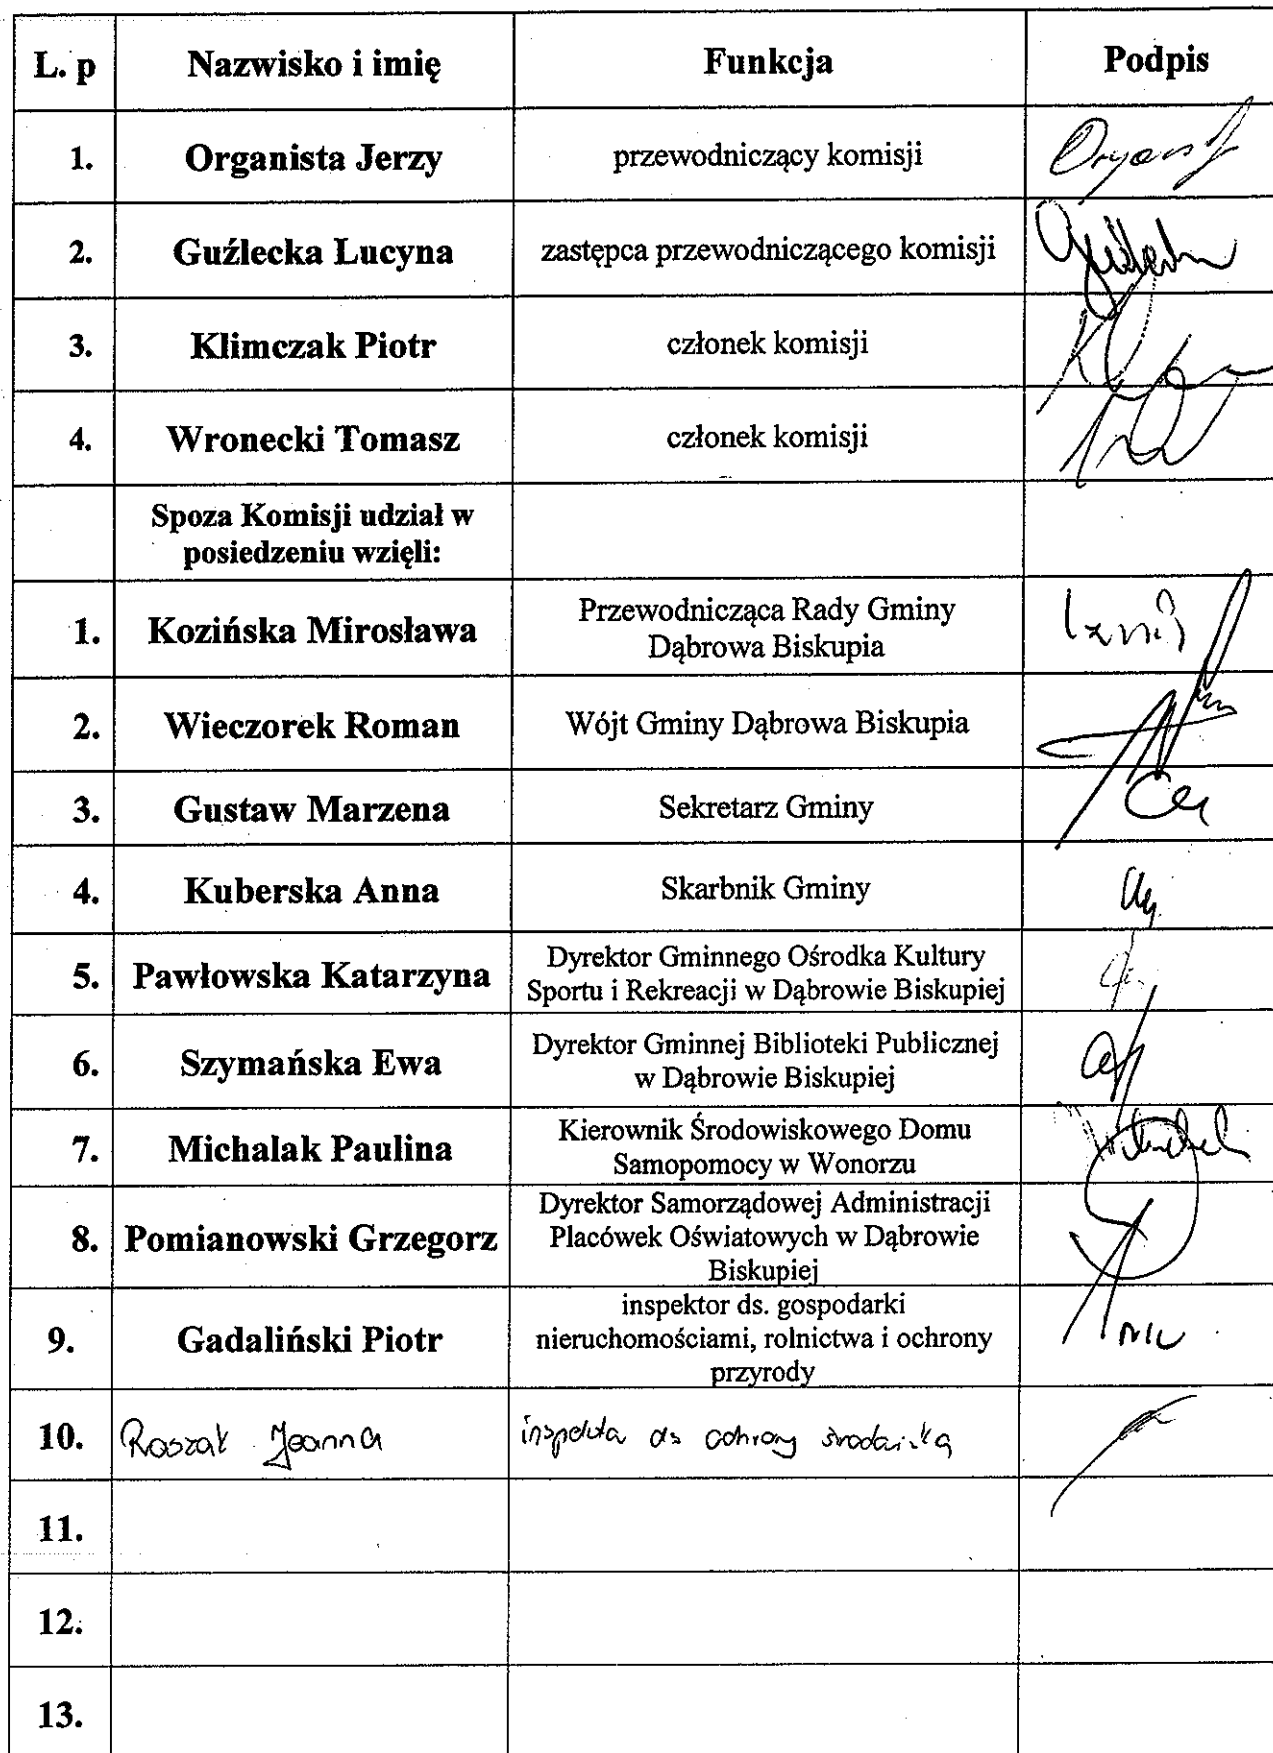 L. p Nazwisko i imię Funkcja Podpis
1. Organista Jerzy przewodniczący komisji
2. Guźlecka Lucyna zastępca przewodniczącego komisji
3. Klimczak Piotr członek komisji
4. Wronecki Tomasz członek komisji
Spoza Komisji udział w
posiedzeniu wzięli:
1. Kozińska Mirosława Przewodnicząca Rady Gminy
Dąbrowa Biskupia
2. Wieczorek Roman Wójt Gminy Dąbrowa Biskupia
3. Gustaw Marzena Sekretarz Gminy
4. Kuberska Anna Skarbnik Gminy
5. Pawłowska Katarzyna Dyrektor Gminnego Ośrodka Kultury
Sportu i Rekreacji w Dąbrowie Biskupiej
6. Szymańska Ewa Dyrektor Gminnej Biblioteki Publicznej
w Dąbrowie Biskupiej
7. Michalak Paulina Kierownik Środowiskowego Domu
Samopomocy w Wonorzu
8. Pomianowski Grzegorz Dyrektor Samorządowej Administracji
Placówek Oświatowych w Dąbrowie
Biskupiej
9. Gadaliński Piotr inspektor ds. gospodarki
nieruchomościami, rolnictwa i ochrony
przyrody
10. Raszak Joanna ds ochrony środowiska
11.
12.
13.